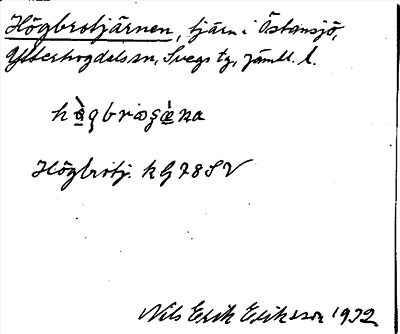 Högbrotjärnen, tjärn i Östansjö,
Ytterhogdals sn, Svegs tg, Jämtl. l.
Högbrotj. kG78SV
Nils Erik Eriksson 1932